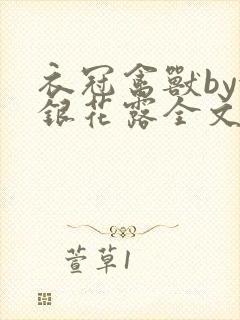 衣冠禽獸by
銀花露全文
萱草1